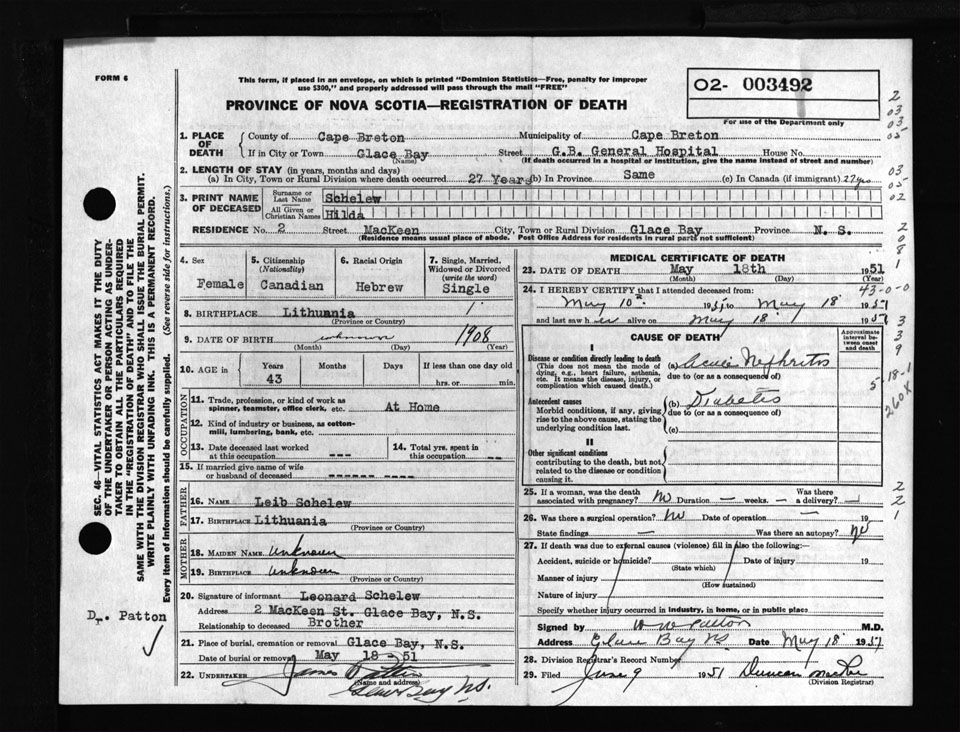 FORM 6
This form, if placed in an envelope, on which is printed "Dominion Statistics—Free, penalty for improper
use $300," and properly addressed will pass through the mail "FREE"
PROVINCE OF NOVA SCOTIA—REGISTRATION OF DEATH
02- 003492
For use of the Department only
1. PLACE OF DEATH
County of Cape Breton Municipality of Cape Breton
If in City or Town Glace Bay Street G.B. General Hospital House No.
(Name) (If death occurred in a hospital or institution, give the name instead of street and number)
2. LENGTH OF STAY (in years, months and days)
(a) In City, Town or Rural Division where death occurred 27 Years (b) In Province Same (c) In Canada (if immigrant) 27 yrs
3. PRINT NAME OF DECEASED
Surname or Last Name Schelew
All Given or Christian Names Hilda
RESIDENCE No. 2 Street MacKeen City, Town or Rural Division Glace Bay Province N. S.
(Residence means usual place of abode. Post Office Address for residents in rural parts not sufficient)
4. Sex Female
5. Citizenship (Nationality) Canadian
6. Racial Origin Hebrew
7. Single, Married, Widowed or Divorced (write the word) Single
8. BIRTHPLACE Lithuania
(Province or Country)
9. DATE OF BIRTH unknown 1908
(Month) (Day) (Year)
10. AGE in Years 43 Months Days If less than one day old
hrs. or min.
OCCUPATION
11. Trade, profession, or kind of work as
spinner, teamster, office clerk, etc. At Home
12. Kind of industry or business, as cotton-
mill, lumbering, bank, etc.
13. Date deceased last worked
at this occupation ---
14. Total yrs. spent in
this occupation --
15. If married give name of wife
or husband of deceased
FATHER
16. NAME Leib Schelew
17. BIRTHPLACE Lithuania
(Province or Country)
MOTHER
18. MAIDEN NAME unknown
19. BIRTHPLACE unknown
(Province or Country)
20. Signature of informant Leonard Schelew
Address 2 MacKeen St. Glace Bay, N.S.
Relationship to deceased Brother
21. Place of burial, cremation or removal Glace Bay, N.S.
Date of burial or removal May 18 51
22. UNDERTAKER James Patten
(Name and address)
Glace Bay N.S.
MEDICAL CERTIFICATE OF DEATH
23. DATE OF DEATH May 18th 1951
(Month) (Day) (Year)
24. I HEREBY CERTIFY that I attended deceased from: 43-0-0
May 10th 1951 to May 18 1951
and last saw her alive on May 18 1951
CAUSE OF DEATH
Approximate interval between onset and death
I
Disease or condition directly leading to death
(This does not mean the mode of dying, e.g., heart failure, asthenia, etc. It means the disease, injury, or complication which caused death.)
(a) Acute Nephritis
due to (or as a consequence of)
Antecedent causes
Morbid conditions, if any, giving rise to the above cause, stating the underlying condition last.
(b) Diabetes
due to (or as a consequence of)
(c)
II
Other significant conditions
contributing to the death, but not related to the disease or condition causing it.
25. If a woman, was the death
associated with pregnancy? No Duration — weeks. — Was there a delivery? —
26. Was there a surgical operation? No Date of operation — 19
State findings — Was there an autopsy? No
27. If death was due to external causes (violence) fill in also the following:—
Accident, suicide or homicide? Date of injury 19
(State which)
Manner of injury
(How sustained)
Nature of injury
Specify whether injury occurred in industry, in home, or in public place
Signed by W W Patton M.D.
Address Glace Bay NS Date May 18 1951
28. Division Registrar's Record Number
29. Filed June 9 1951 Duncan MacRae
(Division Registrar)
SEC. 46—VITAL STATISTICS ACT MAKES IT THE DUTY
OF THE UNDERTAKER OR PERSON ACTING AS UNDER-
TAKER TO OBTAIN ALL THE PARTICULARS REQUIRED
IN THE "REGISTRATION OF DEATH" AND TO FILE THE
SAME WITH THE DIVISION REGISTRAR WHO SHALL ISSUE THE BURIAL PERMIT.
WRITE PLAINLY WITH UNFADING INK. THIS IS A PERMANENT RECORD.
Every item of information should be carefully supplied. (See reverse side for instructions.)
Dr. Patton
2
03
03
05
03
05
02
2
0
8
1
3
3
9
5-18-1
260X
2
2
1